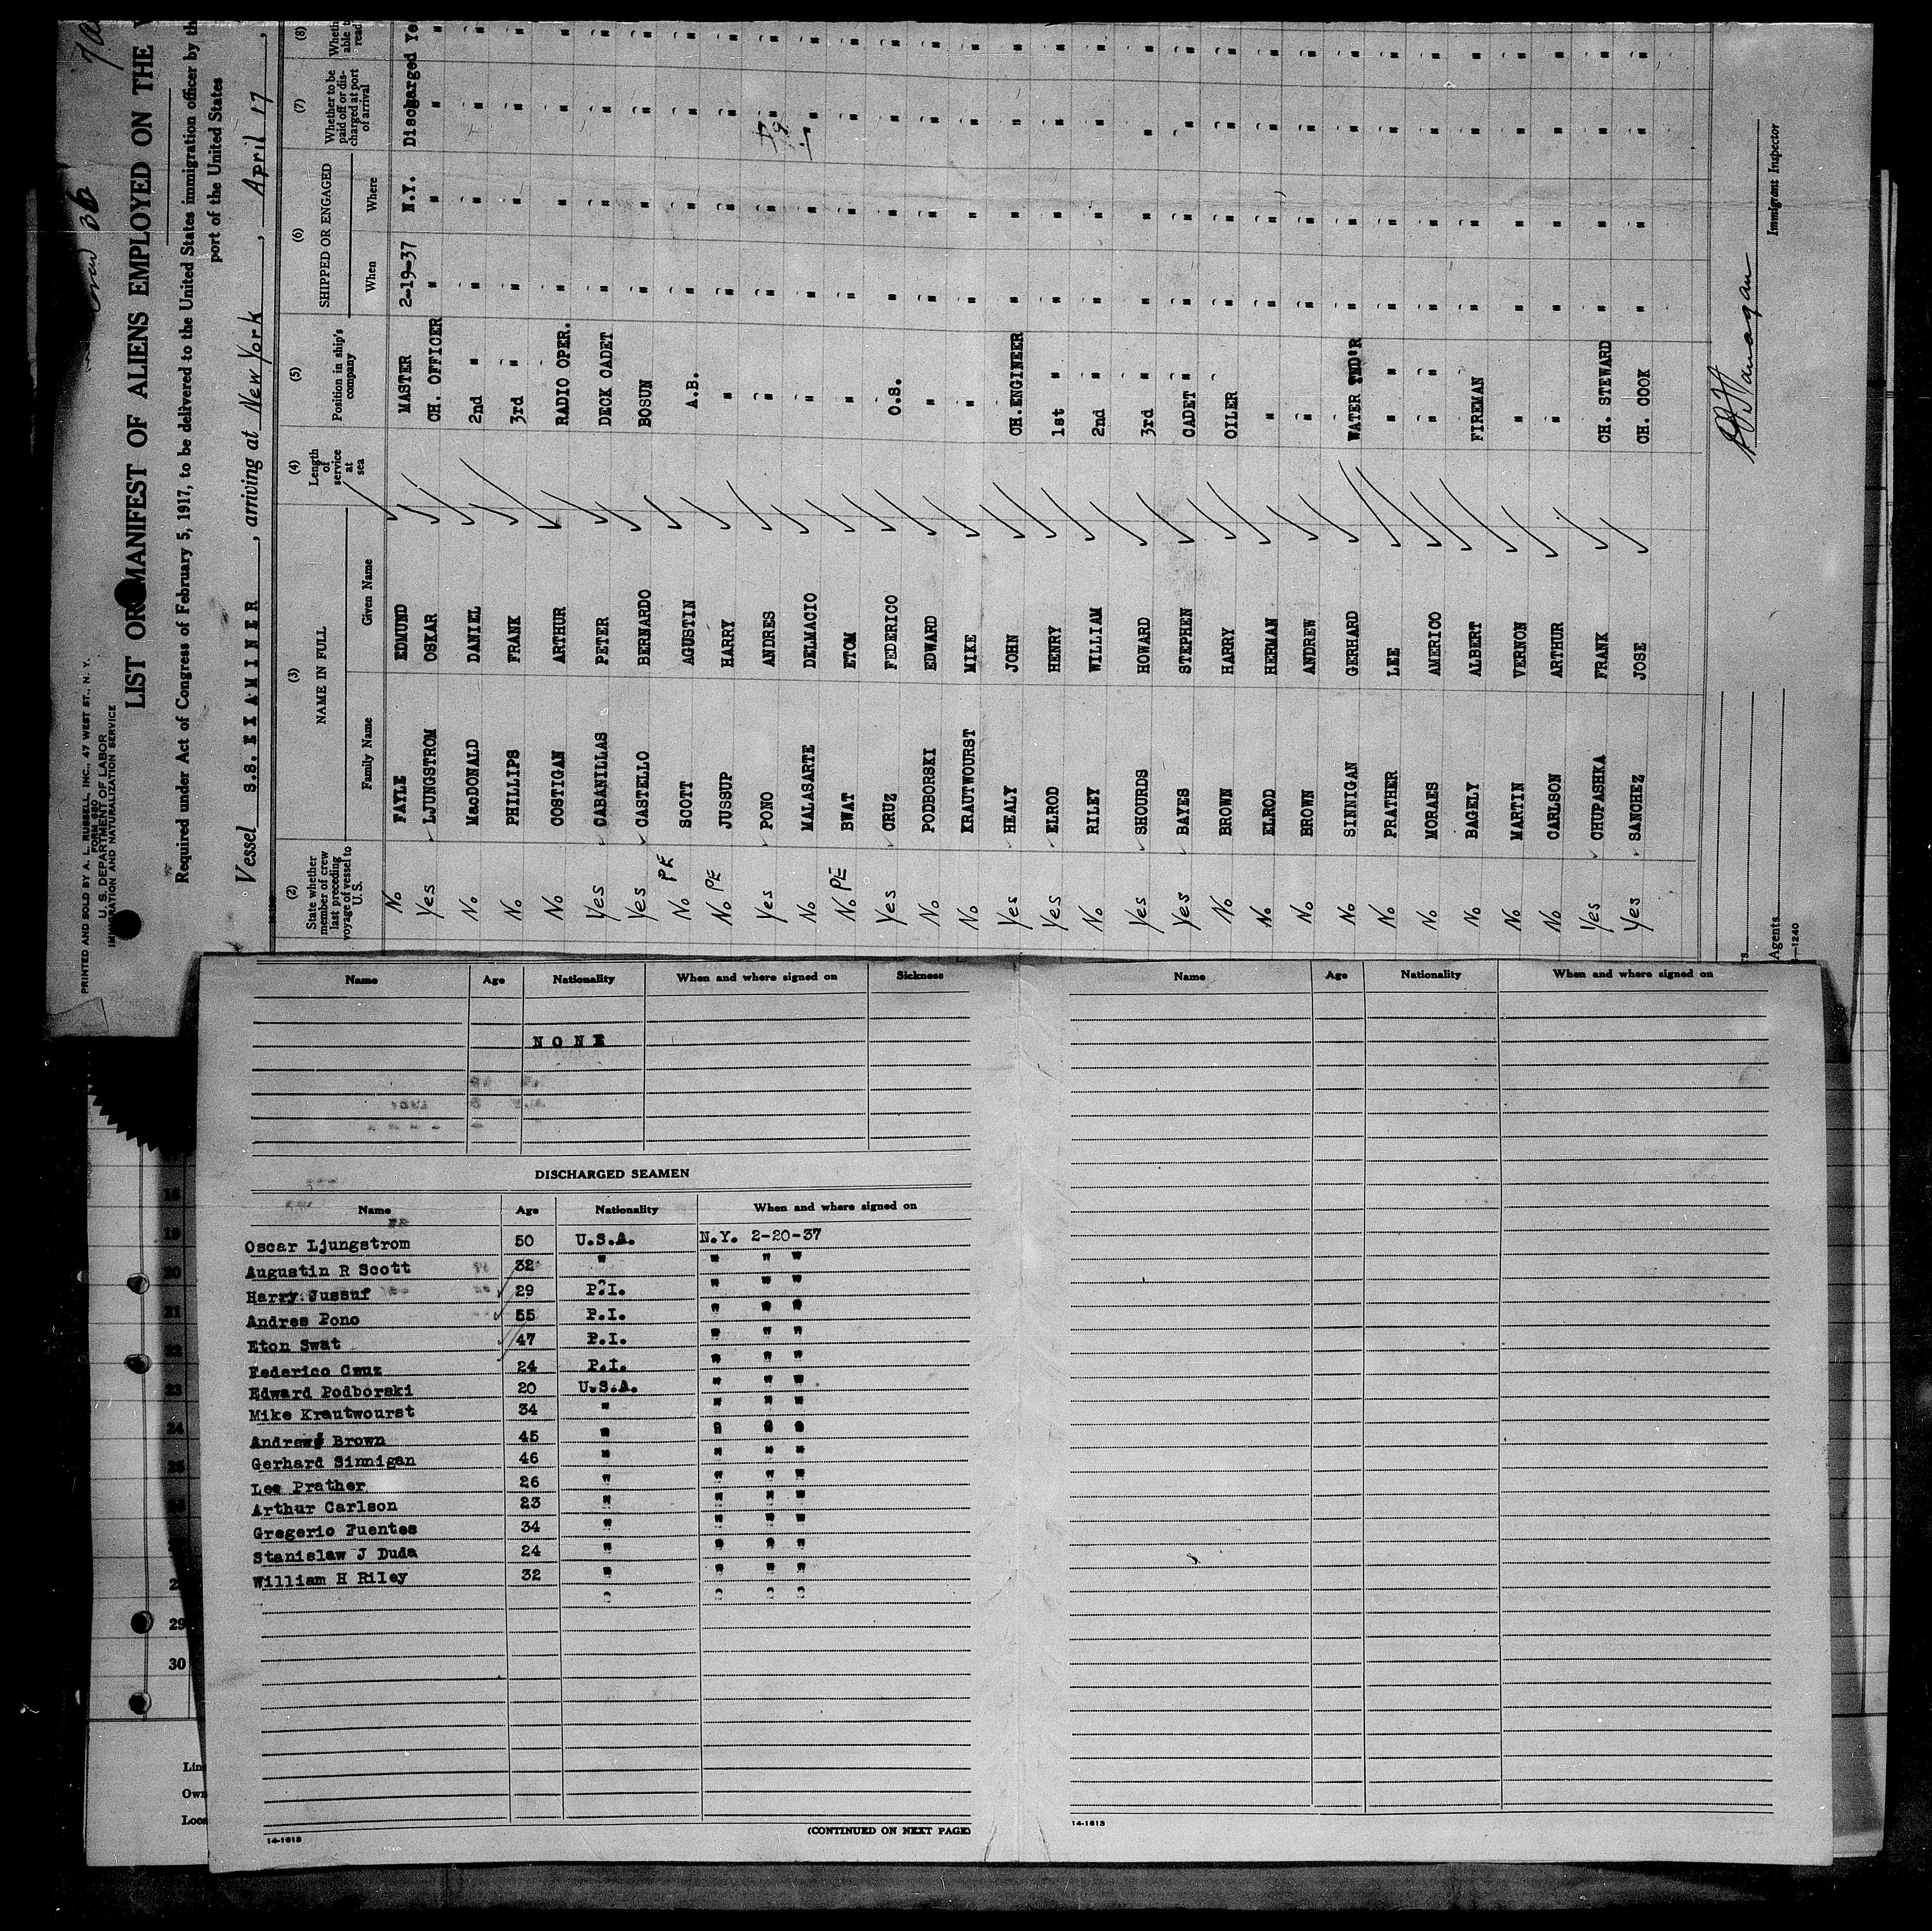 PRINTED AND SOLD BY A. L. RUSSELL, INC., 47 WEST ST., N. Y.
FORM 680
U. S. DEPARTMENT OF LABOR
IMMIGRATION AND NATURALIZATION SERVICE
LIST OR MANIFEST OF ALIENS EMPLOYED ON THE
Required under Act of Congress of February 5, 1917, to be delivered to the United States immigration officer by th
port of the United States
Vessel S.S. EXAMINER, arriving at New York, April 17,
(2) (3) (4) (5) (6) (7) (8)
State whether member of crew last preceding voyage of vessel to U.S. NAME IN FULL Length of service at sea Position in ship's company SHIPPED OR ENGAGED Whether to be paid off or discharged at port of arrival Wheth able t read
Family Name Given Name When Where
No FAYLE EDMUND MASTER 2-19-37 N.Y. Discharged Ye
Yes LJUNGSTROM OSKAR CH. OFFICER " " " "
No MacDONALD DANIEL 2nd " " " " "
No PHILLIPS FRANK 3rd " " " " "
No COSTIGAN ARTHUR RADIO OPER. " " " "
Yes CABANILLAS PETER DECK CADET " " " "
Yes CASTELLO BERNARDO BOSUN " " " "
No PE SCOTT AGUSTIN A.B. " " " "
No PE JUSSUP HARRY " " " " "
Yes PONO ANDRES " " " " "
No MALASARTE DELMACIO " " " " "
No PE BWAT ETOM " " " " "
Yes CRUZ FEDERICO O.S. " " " "
No PODBORSKI EDWARD " " " " "
No KRAUTWOURST MIKE " " " " "
Yes HEALY JOHN CH.ENGINEER " " " "
Yes ELROD HENRY 1st " " " " "
No RILEY WILLIAM 2nd " " " " "
Yes SHOURDS HOWARD 3rd " " " " "
Yes BAYES STEPHEN CADET " " " " "
No BROWN HARRY OILER " " " "
No ELROD HERMAN " " " " "
No BROWN ANDREW " " " " "
No SINNIGAN GERHARD WATER TND'R " " " "
No PRATHER LEE " " " " " "
No MORAES AMERICO " " " " " "
No BAGELY ALBERT FIREMAN " " " "
No MARTIN VERNON " " " " "
No CARLSON ARTHUR " " " " "
Yes CHUPASHKA FRANK CH. STEWARD " " " "
Yes SANCHEZ JOSE CH. COOK " " " "
Immigrant Inspector
Agents
Name Age Nationality When and where signed on Sickness
NONE
DISCHARGED SEAMEN
Name Age Nationality When and where signed on
Oscar Ljungstrom 50 U.S.A. N.Y. 2-20-37
Augustin R Scott 32 " " " "
Harry Jussuf 29 P.I. " " "
Andres Pono 55 P.I. " " "
Eton Swat 47 P.I. " " "
Federico Cruz 24 P.I. " " "
Edward Podborski 20 U.S.A. " " "
Mike Krautwourst 34 " " " "
Andrew Brown 45 " " " "
Gerhard Sinnigan 46 " " " "
Lee Prather 26 " " " "
Arthur Carlson 23 " " " "
Gregerio Fuentes 34 " " " "
Stanislaw J Duda 24 " " " "
William H Riley 32 " " " "
(CONTINUED ON NEXT PAGE)
14-1613
Name Age Nationality When and where signed on
14-1613
18
19
20
21
22
23
24
25
29
30
Lin
Own
Loca